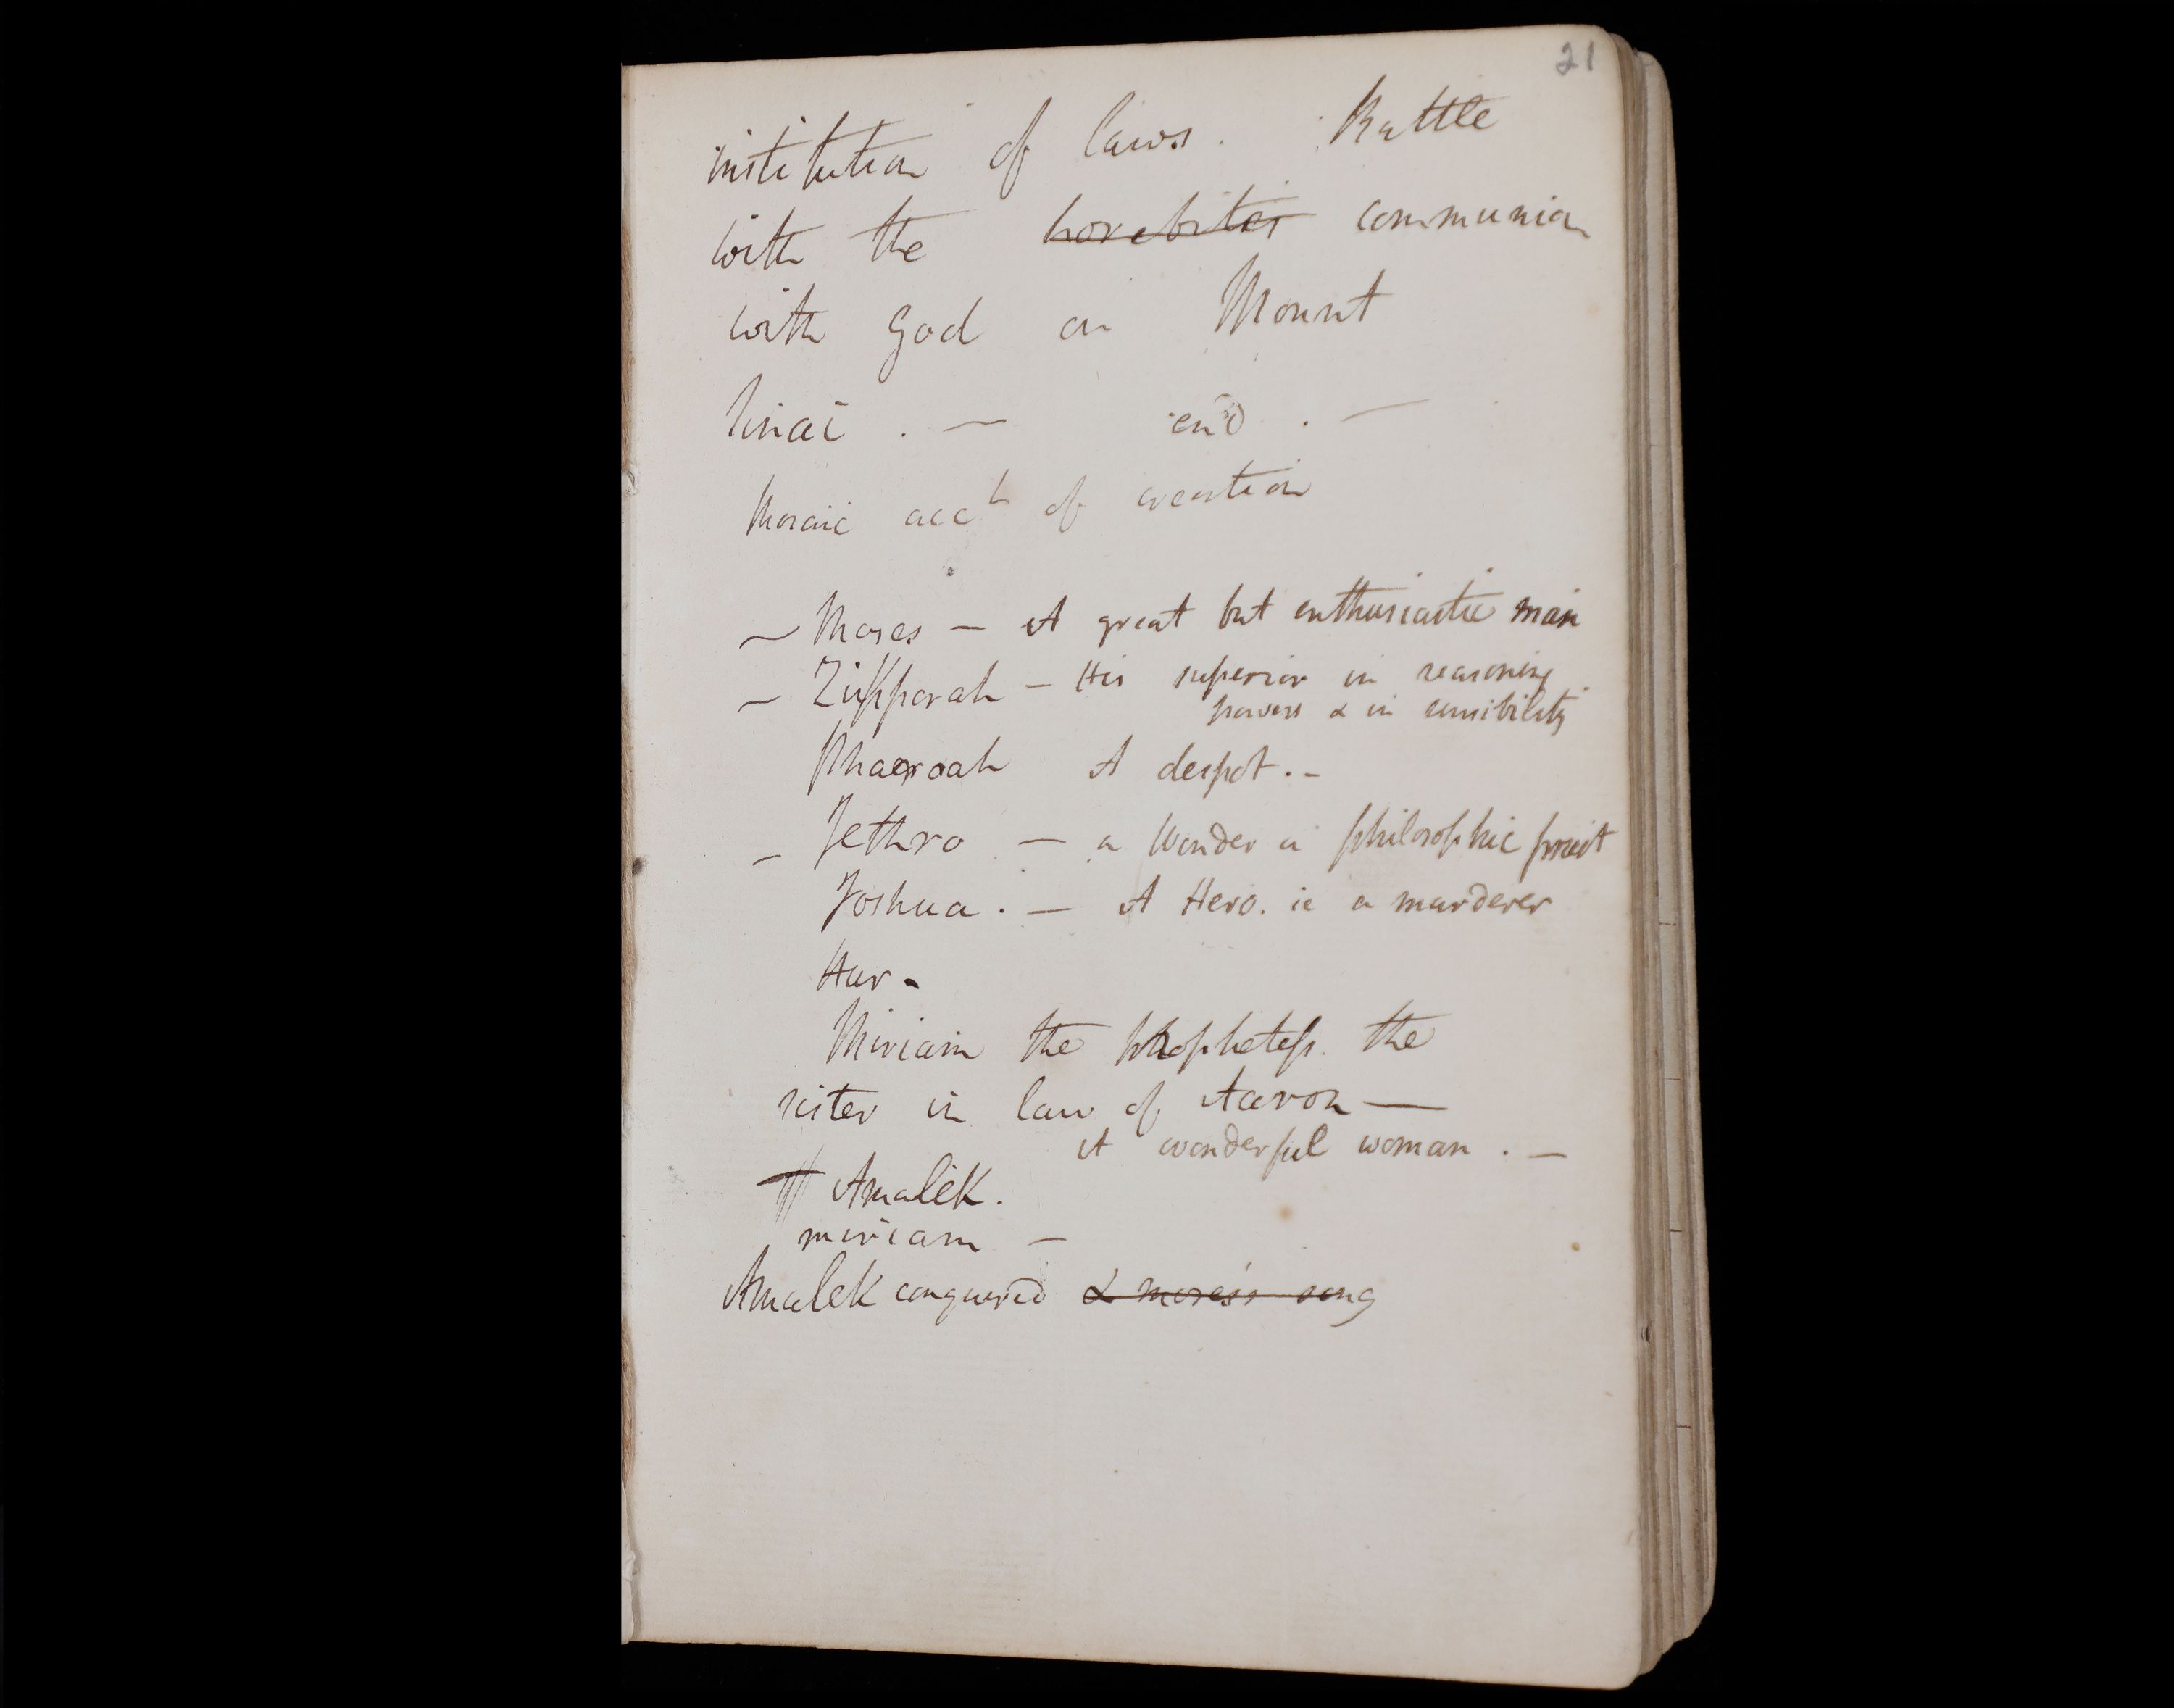 21
institution of laws. Battle
with the horebites communion
with God on Mount
Sinai . — end . —
Mosaic acct of creation
— Moses — A great but enthusiastic man
— Zipporah — His superior in reasoning
powers & in sensibility
Pharoah A despot. -
- Jethro — a philosophic priest
Joshua. — A Hero. ie a murderer
Hur -
Miriam the prophetess the
sister in law of Aaron —
A wonderful woman . —
Amalek.
miriam —
Amalek conquered & moses's song